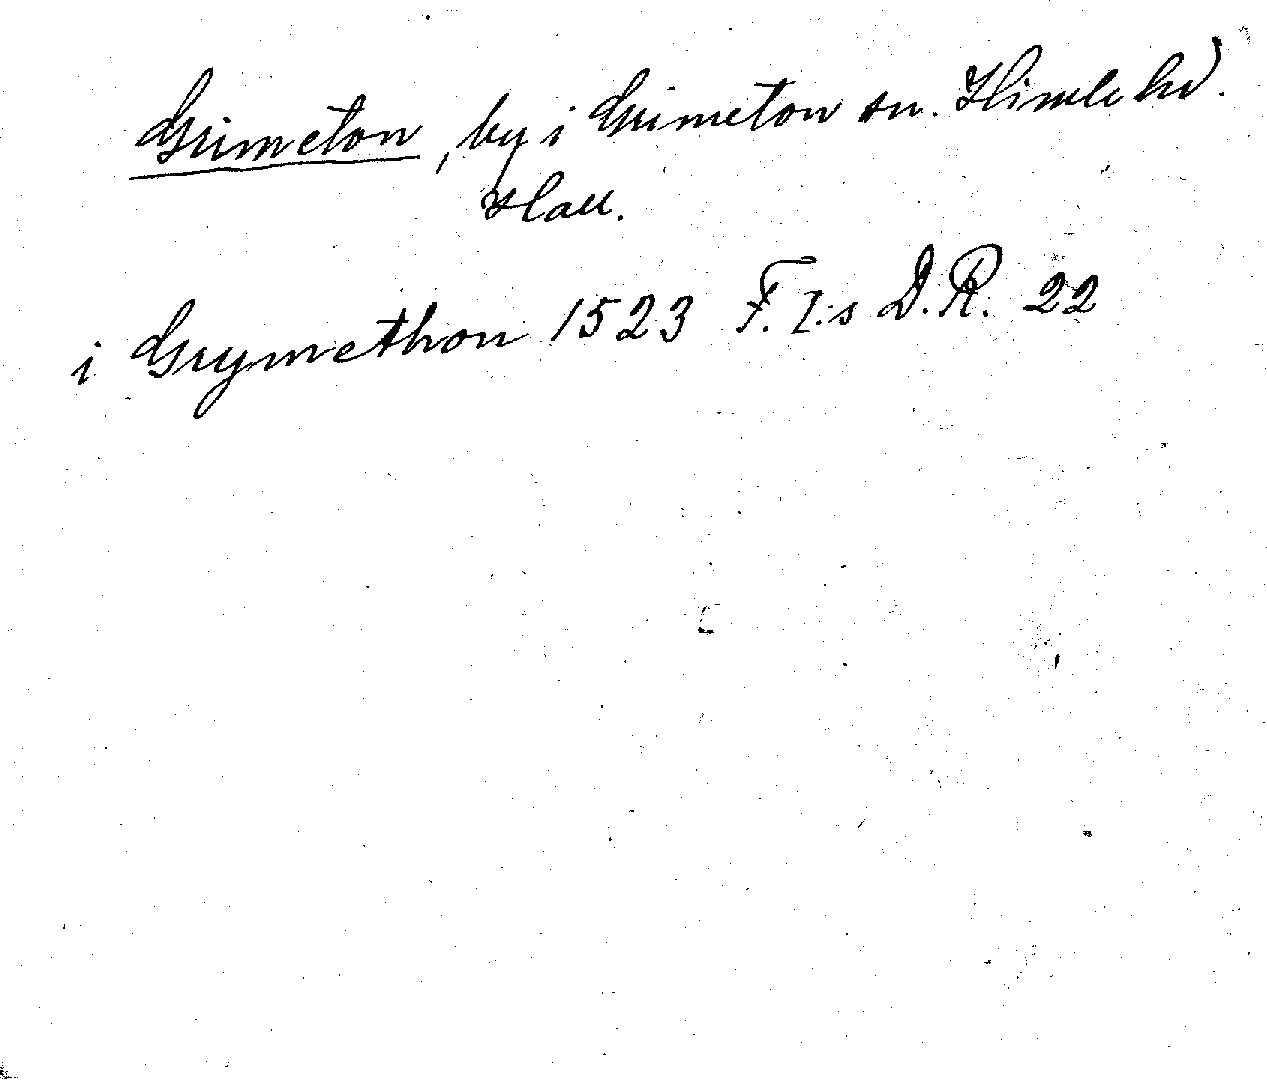 Grimeton, by i Grimeton sn. Himle hd.
Hall.
i Grymethon 1523 F. I:s D.R. 22